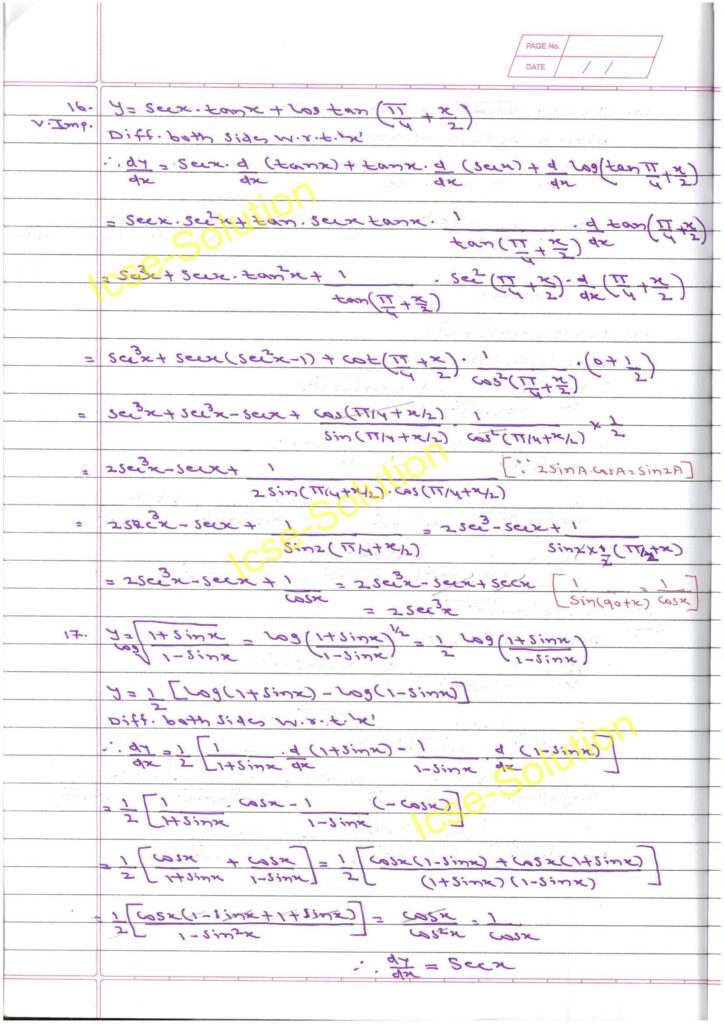 PAGE No.
DATE / /
16. y = secx . tanx + log tan (π/4 + x/2)
V. Imp. Diff. both sides w.r.t. 'x'
∴ dy/dx = secx . d/dx (tanx) + tanx . d/dx (secx) + d/dx log(tan π/4 + x/2)
= secx . sec²x + tan . secx tanx . 1/tan(π/4 + x/2) . d/dx tan(π/4 + x/2)
= sec³x + secx . tan²x + 1/tan(π/4 + x/2) . sec²(π/4 + x/2) . d/dx (π/4 + x/2)
= sec³x + secx (sec²x - 1) + cot(π/4 + x/2) . 1/cos²(π/4 + x/2) . (0 + 1/2)
= sec³x + sec³x - secx + cos(π/4 + x/2)/sin(π/4 + x/2) . 1/cos²(π/4 + x/2) × 1/2
= 2sec³x - secx + 1/2sin(π/4 + x/2) . cos(π/4 + x/2) [∵ 2sinA . cosA = sin2A]
= 2sec³x - secx + 1/sin2(π/4 + x/2) = 2sec³ - secx + 1/sin2 × 1/2 (π/2 + x)
= 2sec³x - secx + 1/cosx = 2sec³x - secx + secx [1/sin(90+x) = 1/cosx]
= 2sec³x
17. y = log √(1+sinx/1-sinx) = log(1+sinx/1-sinx)^1/2 = 1/2 log(1+sinx/1-sinx)
y = 1/2 [log(1+sinx) - log(1-sinx)]
Diff. both sides w.r.t. 'x'
∴ dy/dx = 1/2 [1/1+sinx . d/dx (1+sinx) - 1/1-sinx . d/dx (1-sinx)]
= 1/2 [1/1+sinx . cosx - 1/1-sinx (-cosx)]
= 1/2 [cosx/1+sinx + cosx/1-sinx] = 1/2 [cosx(1-sinx) + cosx(1+sinx)/(1+sinx)(1-sinx)]
= 1/2 [cosx(1-sinx+1+sinx)/1-sin²x] = cosx/cos²x = 1/cosx
∴ dy/dx = secx
Icse-Solution
Icse-Solution
Icse-Solution